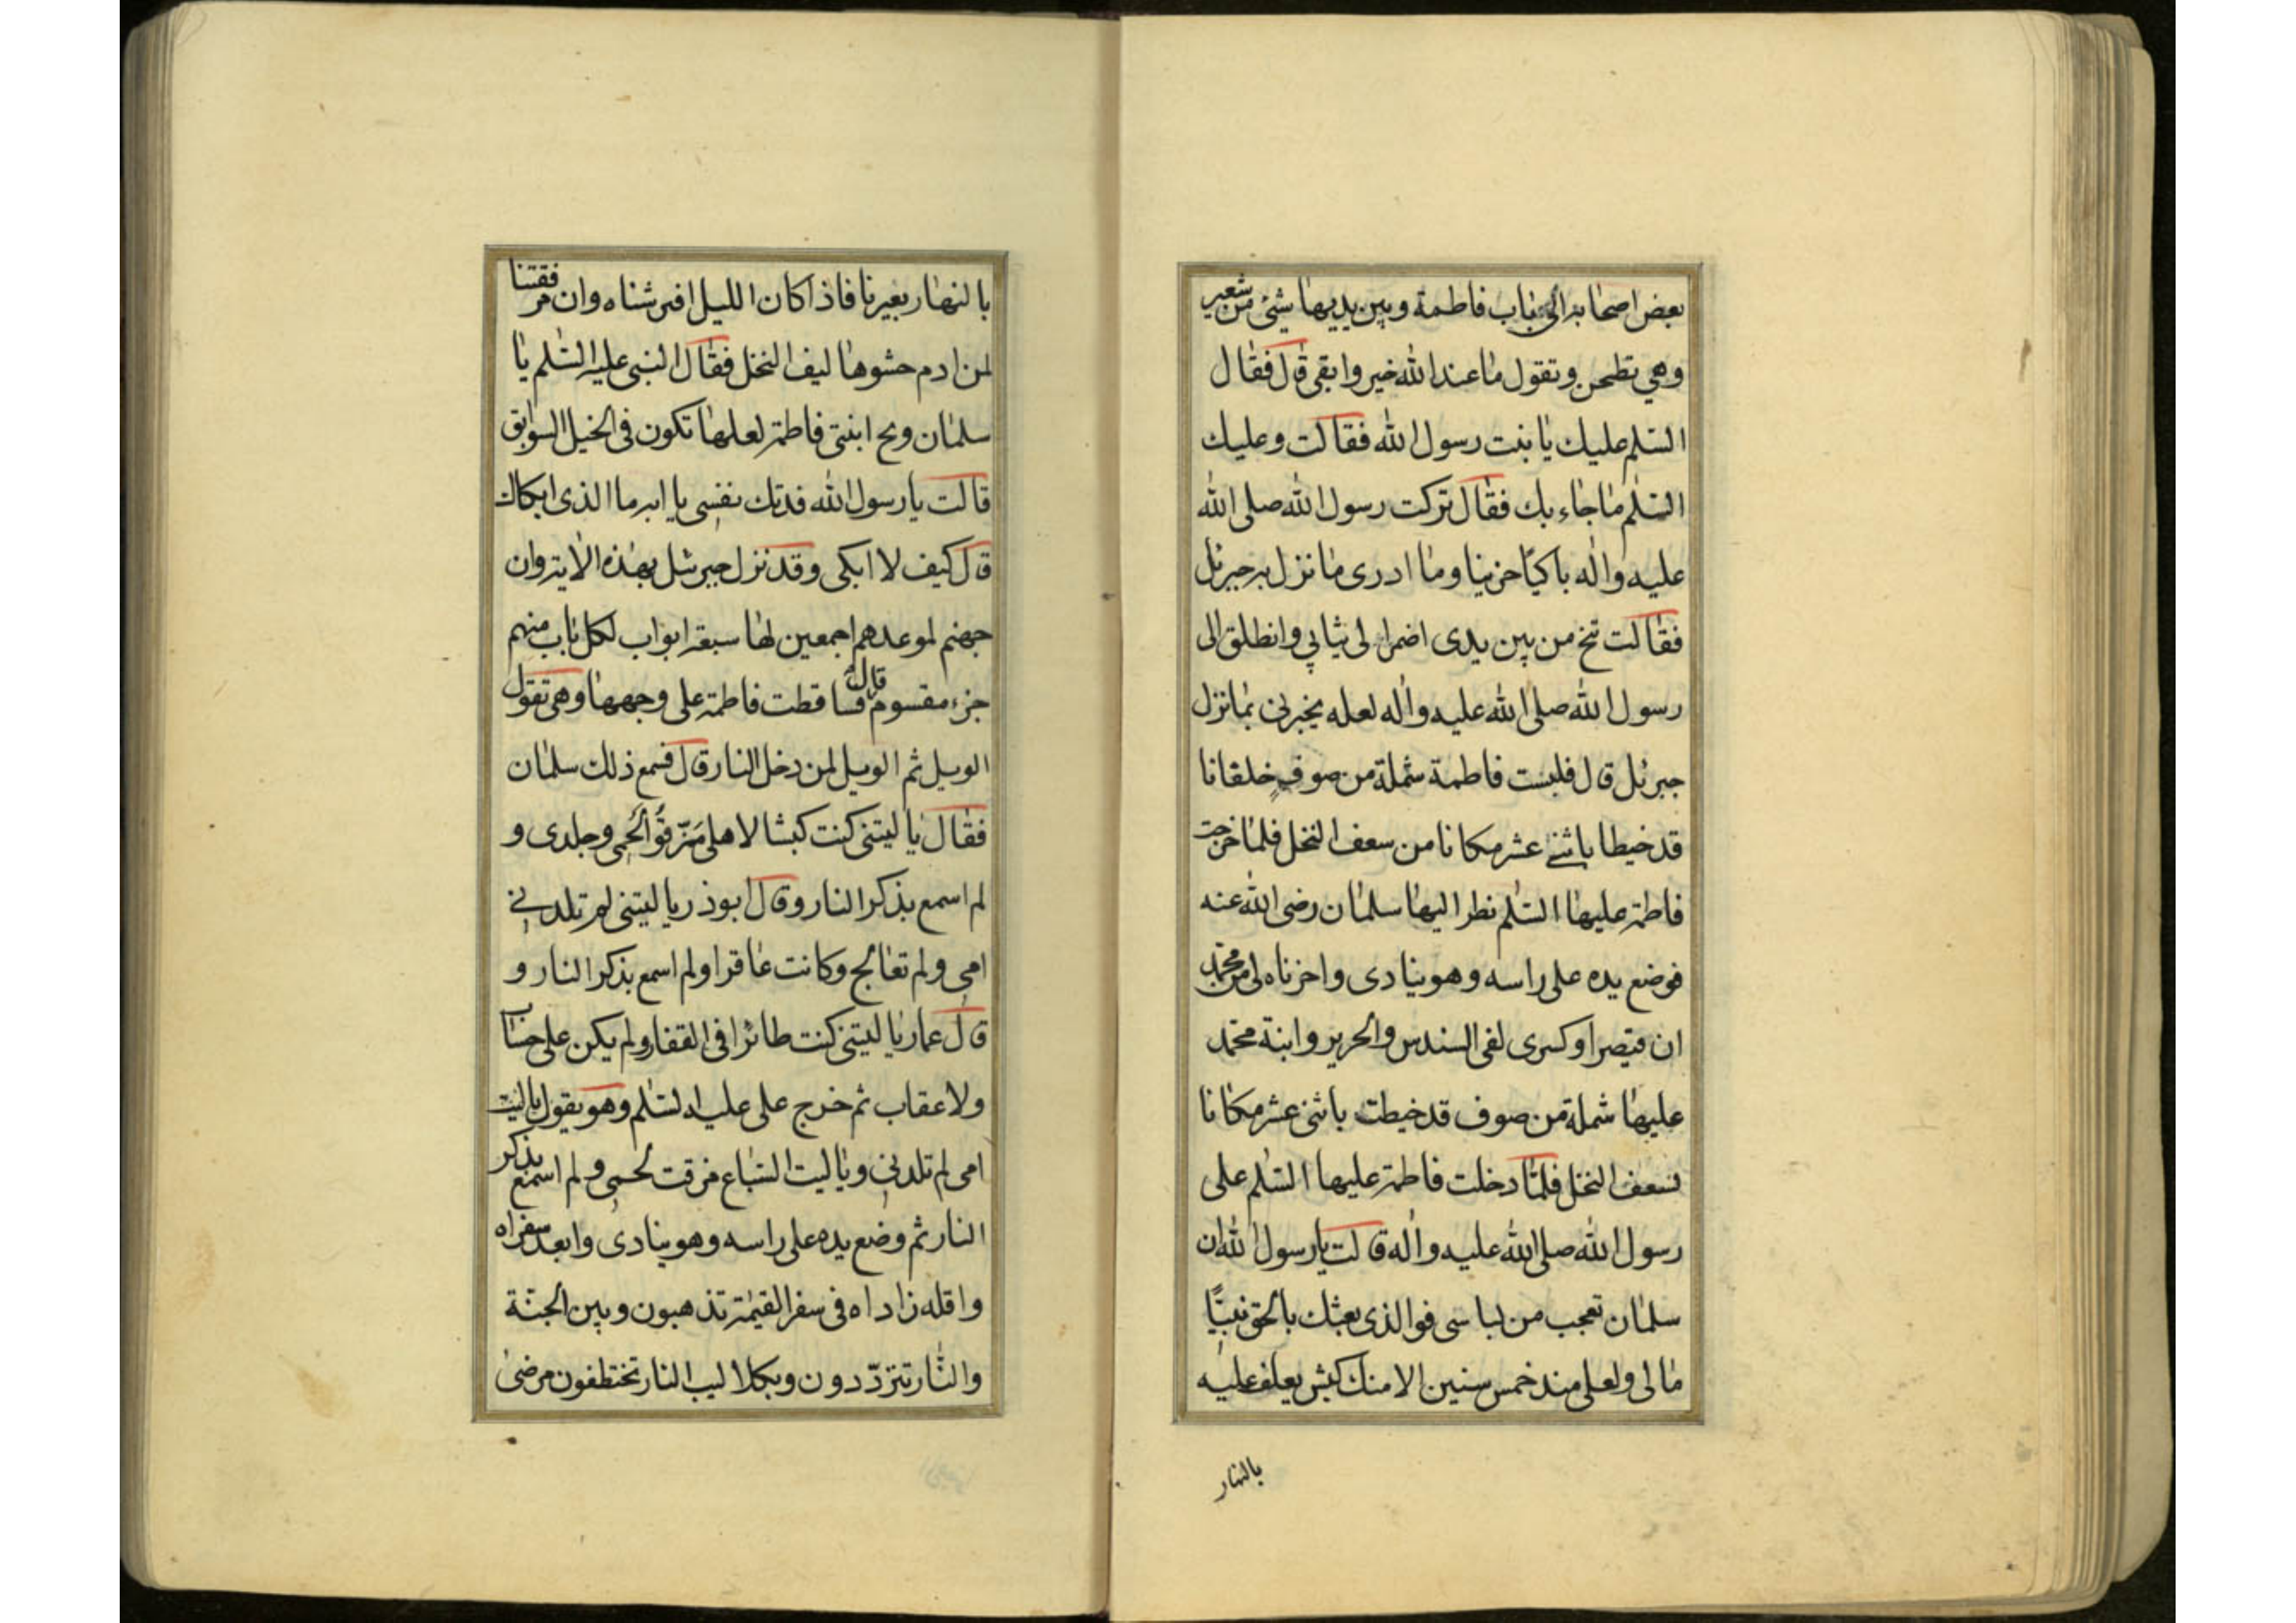 بعض اصحابه الى باب فاطمة وبين يديها شئ من شعير
وهي تطحن وتقول ما عند الله خير وابقى قال فقال
السّلم عليك يا بنت رسول الله فقالت وعليك
السّلم ما جاء بك فقال تركت رسول الله صلى الله
عليه واله باكيًا حزينا وما ادرى ما نزل به جبرئل
فقالت تنح من بين يدى اضم الى ثيابي وانطلق الى
رسول الله صلى الله عليه واله لعله يخبرنى بما نزل
جبرئل قال فلبست فاطمة شملة من صوفٍ خلقانا
قد خيطا باثنے عشر مكانا من سعف النخل فلما خرجت
فاطمة عليها السّلم نظر اليها سلمان رضى الله عنه
فوضع يده على راسه وهو ينادى واحزناه لى من محمد
ان قيصر او كسرى لفى السندس والحرير وابنة محمّد
عليها شملة من صوف قد خيطت باثنى عشر مكانا
بسعف النخل فلمّا دخلت فاطمة عليها السّلم على
رسول الله صلى الله عليه واله قالت يا رسول الله ان
سلمان تعجب من لباسى فوالذى بعثك بالحق نبيًّا
ما لى ولعلى منذ خمس سنين الا منك كبش يعلف عليه
بالنهار
بالنهار بعيرنا فاذا كان الليل افترشناه وان مرفقتنا
لمن ادم حشوها ليف النخل فقال النبى عليه السّلم يا
سلمان ويح ابنتى فاطمة لعلها تكون فى الخيل السوابق
قالت يا رسول الله فدتك نفسى يا ابه ما الذى ابكاك
قال كيف لا ابكى وقد نزل جبرئيل بهذه الاية وان
جهنم لموعدهم اجمعين لها سبعة ابواب لكل باب منهم
جزء مقسوم قال فساقطت فاطمة على وجهها وهى تقول
الويل ثم الويل لمن دخل النار قال فسمع ذلك سلمان
فقال يا ليتنى كنت كبشا لاهلى مَزّقوُا لَحمِى وجلدى و
لم اسمع بذكر النار وقال ابوذر يا ليتنى لم تلدنے
امى ولم تعالج وكانت عاقرا ولم اسمع بذكر النار و
قال عمار يا ليتنى كنت طائرا فى القفار ولم يكن على حساب
ولا عقاب ثم خرج على عليه السّلم وهو يقول يا ليت
امى لم تلدنى ويا ليت السّباع مزقت لحمى ولم اسمع بذكر
النار ثم وضع يده على راسه وهو ينادى وا بعد سفراه
وا قله زاداه فى سفر القيمة تذهبون وبين الجنّة
والنّار تتردّدون وبكلاليب النار تختطفون مرضى